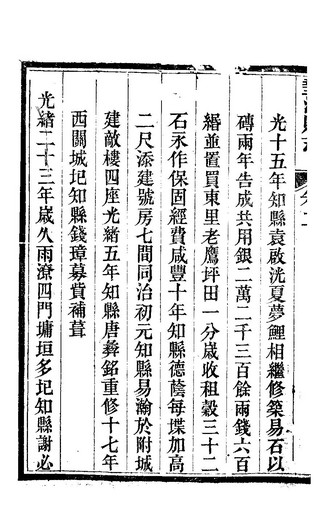 光十五年知縣袁啟洸夏夢鯉相繼修築易石以
磚兩年吿成共用銀二萬二千三百餘兩錢六百
緡並置買東里老鷹坪田一分歲收租穀三十二
石永作保固經費咸豐十年知縣德蔭每堞加高
二尺添建號房七間同治初元知縣易瀚於附城
建敵樓四座光緒五年知縣唐彝銘重修十七年
西關城圮知縣錢璋募貲補葺
光緒二十三年歲久雨潦四門墉垣多圮知縣謝必